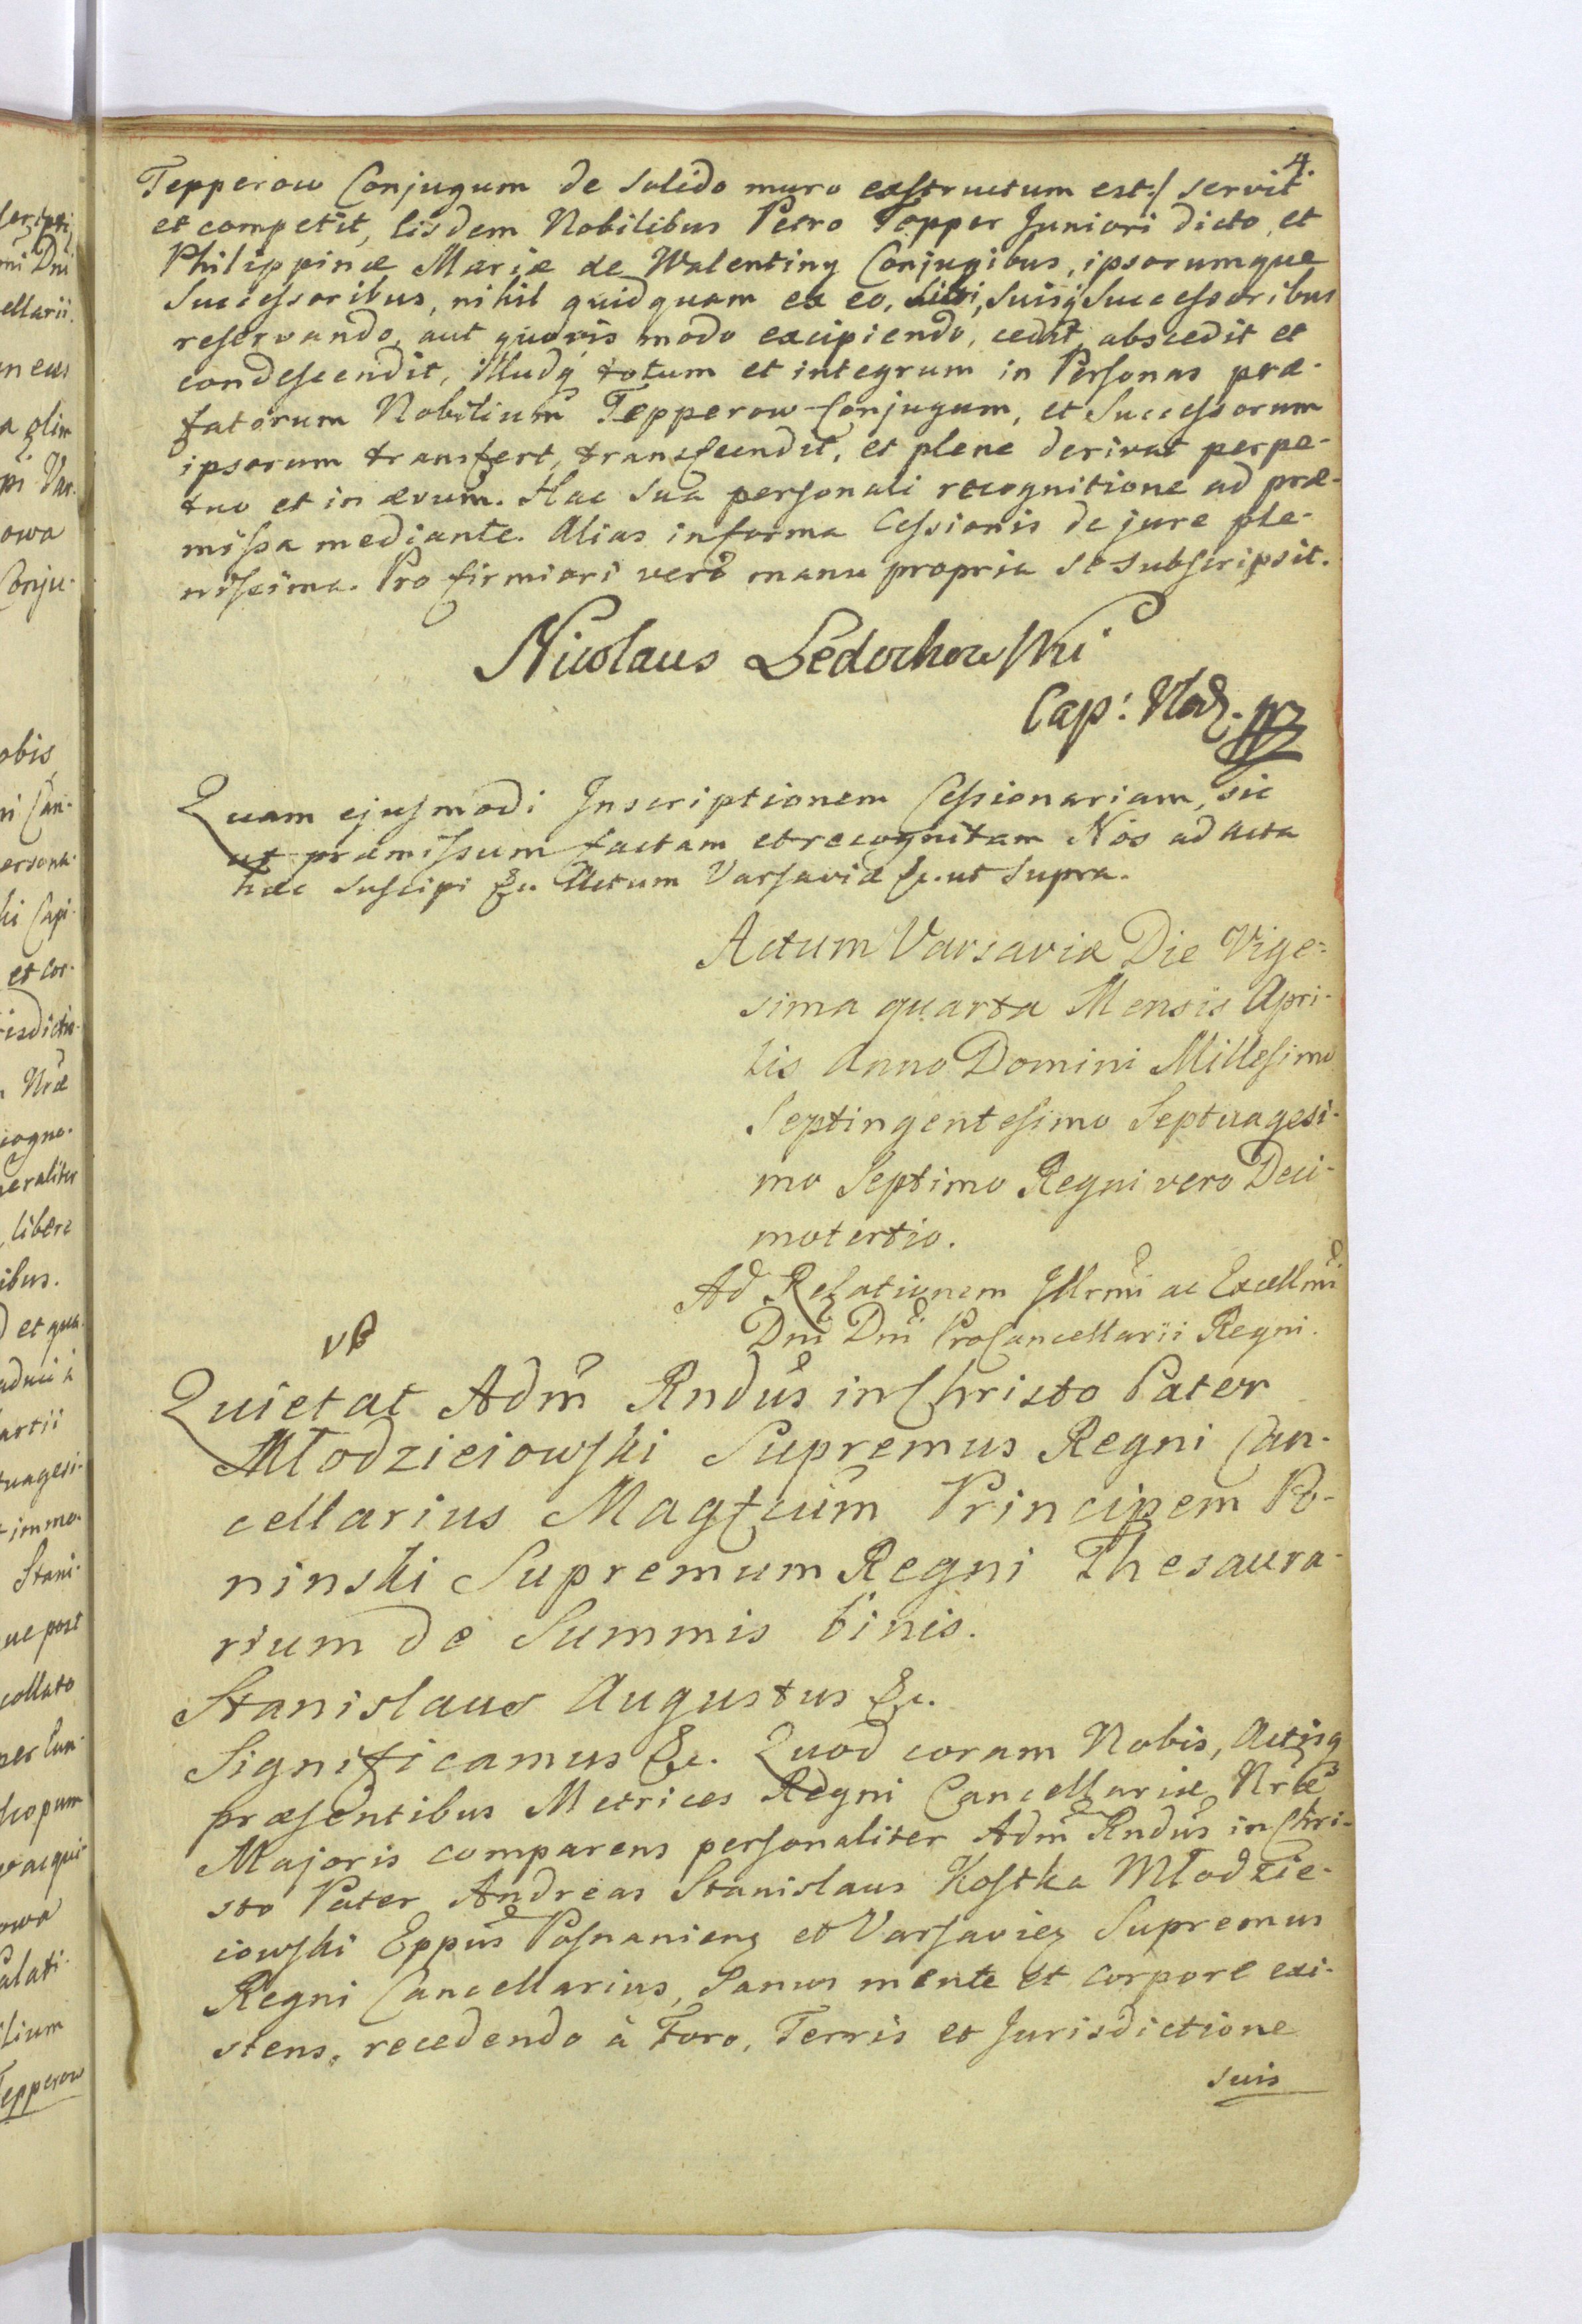 4.
Tepperow Conjugum de solido muro exstructum est:/ servit
et competit, Iisdem Nobilibus Petro Tepper Juniori dicto, et
Philippinæ Mariæ de Walentiny Conjugibus, ipsorumque
Successoribus, nihil quidquam ex eo, sibi, suisq Successoribus
reservando, aut quovis modo excipiendo, cedit, abscedit et
condescendit, illudq totum et integrum in Personas præ-
fatorum Nobilium Tepperow Conjugum, et Successorum
ipsorum transfert, transfundit, et plene derivat perpe-
tuo et in ævum. Hac sua personali recognitione ad præ-
missa mediante. Alias in forma Cessionis de jure ple-
nissima. Pro firmiori verò manu propria se subscripsit.
Nicolaus Ledochowski
Cap: Wlod.
Quam ejusmodi Inscriptionem Cessionariam, sic
ut præmissum factam et recognitam Nos ad Acta
hæc suscipi &c. Actum Varsaviæ &c. ut supra.
Actum Varsaviæ Die Vige-
sima quarta Mensis Apri-
lis Anno Domini Millesimo
Septingentesimo Septuagesi-
mo Septimo Regni vero Deci-
motertio.
Ad Relationem Illrmi ac Excellmi
Dni Dni ProCancellarii Regni.
Quietat Adm Rndus in Christo Pater
Młodzieiowski Supremus Regni Can-
cellarius Magfcum Principem Po-
ninski Supremum Regni Thesaura-
rium de Summis binis.
Stanislaus Augustus &c.
Significamus &c. Quod coram Nobis, Actisq
præsentibus Metrices Regni Cancellariæ Nræ
Majoris comparens personaliter Adm Rndus in Chri-
sto Pater Andreas Stanislaus Kostka Młodzie-
iowski Eppus Posnanien et Varsavien Supremus
Regni Cancellarius, Sanus mente et corpore exi-
stens, recedendo à Foro, Terris et Jurisdictione
suis